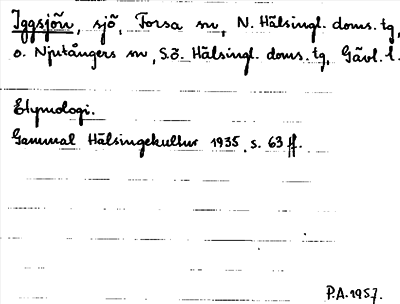 Iggsjön, sjö, Forsa sn, N. Hälsingl. doms. tg,
o. Njutångers sn, S.ö. Hälsingl. doms. tg, Gävl. l.
Etymologi.
Gammal Hälsingekultur 1935 s. 63 ff.
P.A. 1957.